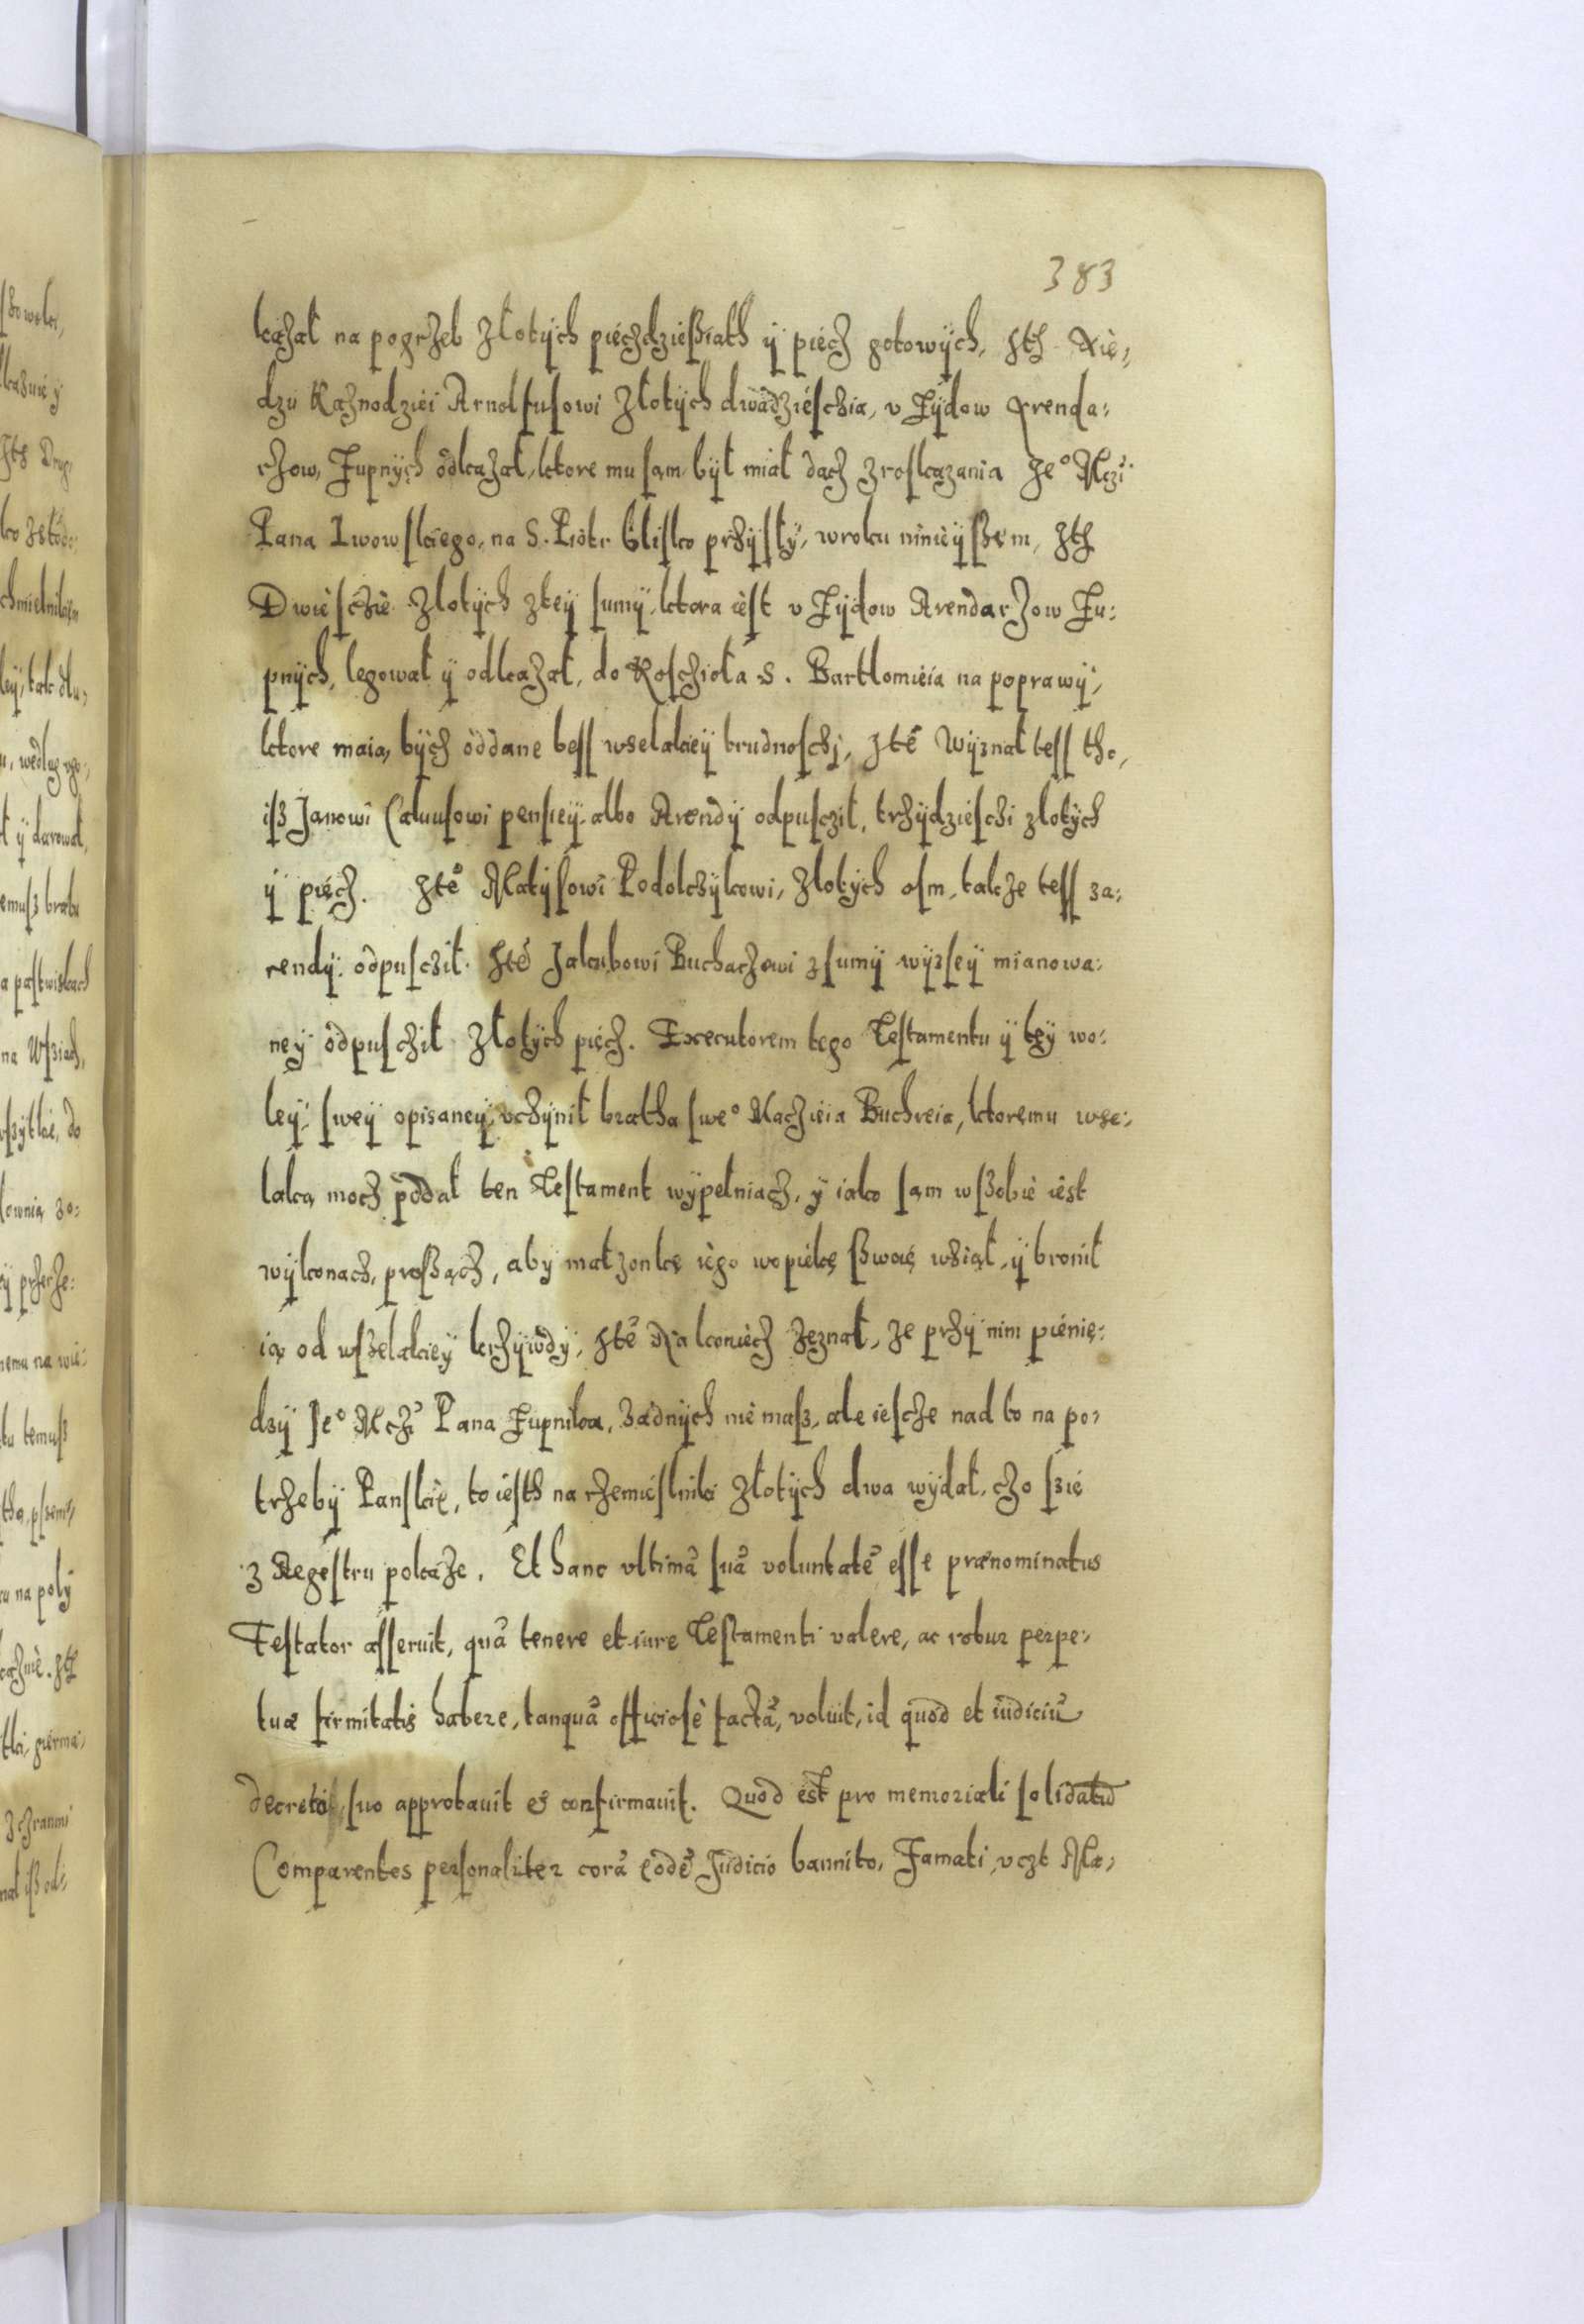 383
kazał na pogrzeb złotÿch piećzdzießiath ÿ piećz gotowÿch, Ith Xię„
dzu Kaznodziei Arnolfusowi złotÿch dwadzieschia, v Zÿdow Arenda:
rzow, Zupnÿch odkazał, ktore mu sąm był miał dacz zroskazania Je° Mczi
Pana Lwowskiego, na S. Piotr blisko przÿsłÿ, wroku ninieÿßem, Ith
Dwieschie złotÿch zteÿ sumÿ, ktora iest v Zÿdow Arendarzow Zu:
pnÿch, legował ÿ odkazał, do Koschioła S. Bartłomieia na poprawÿ,
ktore maia, bÿcz oddane bess wselakieÿ trudnoschj, Itē Wÿznał tess tho,
isz Janowi Caluusowi pensieÿ albo Arendÿ odpuscził, trzÿdzieschi złotÿch
ÿ piećz. Itē Matÿsowi Podolszÿkowi, złotÿch osm, takze tess za:
rendÿ odpuscził. Itē Jakubowi Buchaczowi zsumÿ wÿzseÿ mianowa:
neÿ odpuschił złotÿch piećz. Executorem tego Testamentu ÿ teÿ wo:
leÿ sweÿ opisaneÿ vczÿnił bratha swe° Maczieia Buchreia, ktoremu wse:
laką mocz podał ten Testament wÿpełniacz, ÿ iako sąm wsobie iest
wÿkonacz, proßącz, aby małzonkę iego wopiekę ßwoię wsiął, ÿ bronił
ią od wszelakieÿ krzÿwdÿ, Itē Na koniecz zeznał, ze przÿ nim pienię:
dzÿ Je° Mczi Pana Zupnika, zadnÿch nie masz, ale iescze nad to na po„
trzebÿ Panskie, to iesth na rzemieslniki złotÿch dwa wÿdał, czo szie
z Regestru pokaze. Et hanc vltimā suā voluntatē esse prænominatus
Testator asseruit, quā tenere et iure Testamenti valere, ac robur perpe„
tuæ firmitatis habere, tanquā officiosè factā, voluit, id quod et iudiciū
decreto suo approbauit et confirmauit. Quod est pro memoriali solidatū
Comparentes personaliter corā eodē Judicio bannito, Famati, vczt Ma„